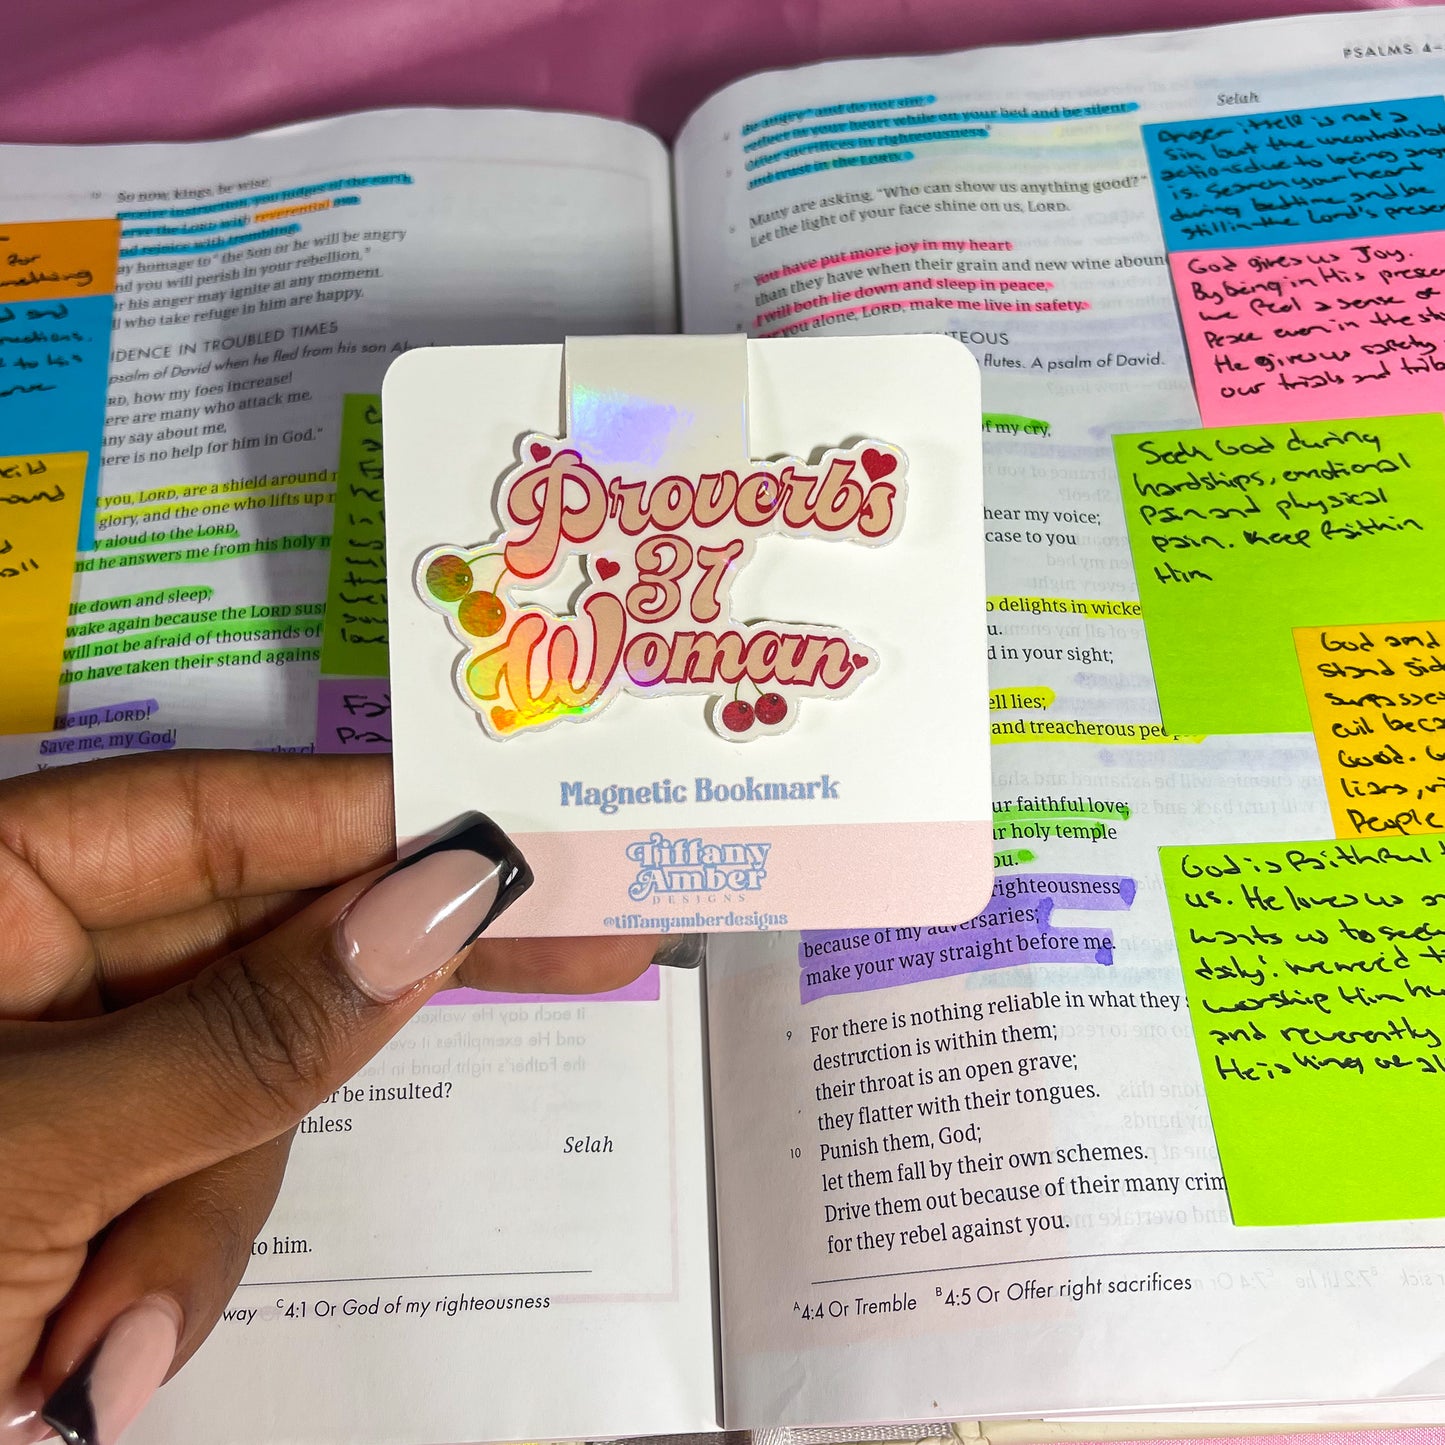 So now, kings, be wise;
receive instruction, you judges of the earth.
serve the LORD with reverential awe
and rejoice with trembling.
ay homage to the Son or he will be angry
nd you will perish in your rebellion,
r his anger may ignite at any moment.
ll who take refuge in him are happy.
IDENCE IN TROUBLED TIMES
psalm of David when he fled from his son
RD, how my foes increase!
ere are many who attack me.
any say about me,
here is no help for him in God."
t you, LORD, are a shield around
glory, and the one who lifts up
y aloud to the LORD,
nd he answers me from his holy
lie down and sleep;
wake again because the LORD sus
will not be afraid of thousands of
ho have taken their stand agains
ise up, LORD!
Save me, my God!
r be insulted?
thless
Selah
to him.
way C4:1 Or God of my righteousness
for
mething
Proverbs
31
Woman
Magnetic Bookmark
Tiffany
Amber
DESIGNS
@tiffanyamberdesigns
PSALMS 4–
Selah
Be angry and do not sin;
reflect in your heart while on your bed and be silent.
Offer sacrifices in righteousness
and trust in the LORD.
Many are asking, "Who can show us anything good?"
Let the light of your face shine on us, LORD.
7 You have put more joy in my heart
than they have when their grain and new wine aboun
8 I will both lie down and sleep in peace,
you alone, LORD, make me live in safety.
TEOUS
flutes. A psalm of David.
f my cry,
hear my voice;
case to you
o delights in wicke
u.
d in your sight;
ell lies;
and treacherous peo
ur faithful love;
ir holy temple
ou.
righteousness
because of my adversaries;
make your way straight before me.
9 For there is nothing reliable in what they s
destruction is within them;
their throat is an open grave;
they flatter with their tongues.
10 Punish them, God;
let them fall by their own schemes.
Drive them out because of their many crim
for they rebel against you.
A4:4 Or Tremble B4:5 Or Offer right sacrifices
Anger itself is not a
sin but the uncontrollabl
actions due to being ang
is. Search your heart
during bedtime and be
still in the Lord's presen
God gives us Joy.
By being in His presen
we feel a sense of
Peace even in the st
He gives us safety
our trials and trib
Seek God during
hardships, emotional
pain and physical
pain. Keep faith in
Him
God and
stand sid
surpasses
evil beca
Good.
liars,
People
God is faithful t
us. He loves us an
wants us to seek
daily.
worship Him
and reverently
He is king